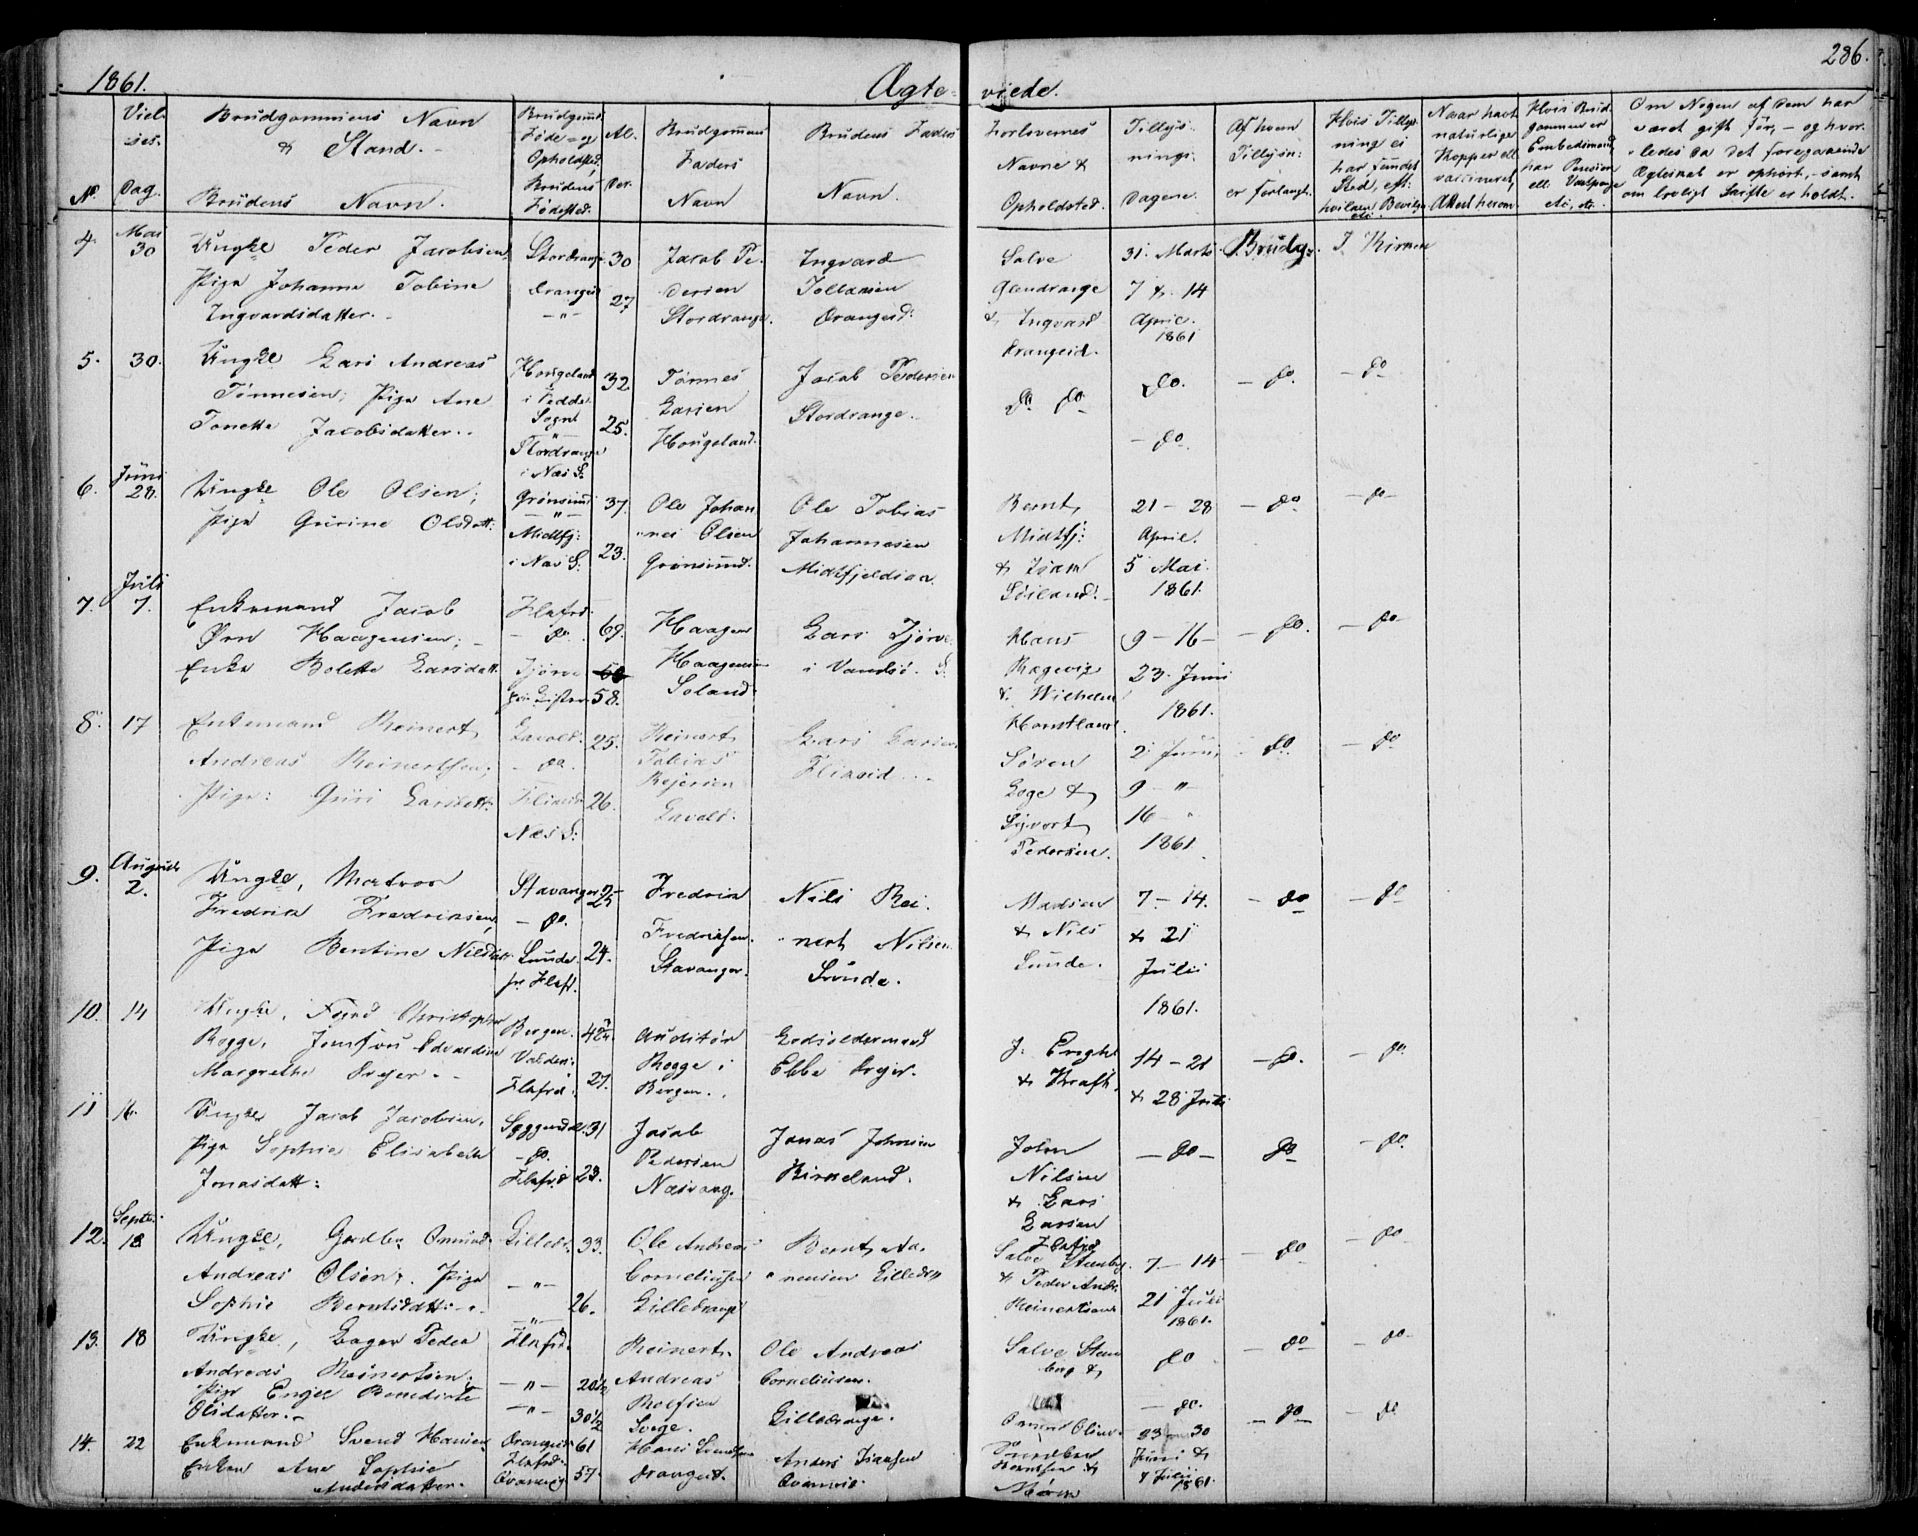 1861.
Ægte-
viede.
286.
No.
Viel-
ses-
Dag.
Brudgommens Navn
& Stand.
Brudens Navn.
Brudgoms
Føde- og
Opholdsted,
Brudens
Fødested.
Al-
der.
Brudgommens
Faders
Navn
Brudens Faders
Navn.
Forlovernes
Navne &
Opholdsted.
Tillys-
nings-
Dagene.
Af hvem
Tillysn:
er forlangt.
Hvis Tillys-
ning ei
har fundet
Sted, eft:
hvilken Bevilgn
Naar havt
naturlige
Kopper ell.
vaccineret,
Attest herom.
Hvis Brud-
gommen er
Embedsmand,
har Pension
ell.
etc, etc.
Om Nogen af dem har
været gift før, - og hvor-
ledes da det foregaaende
Ægteskab er ophørt, - samt
om lovligt Skifte er holdt.
4.
Mai
30
Ungkl Peder Jacobsen
Pige Johanne Tobine
Ingvardsdatter.
Stordrange
Drangeid
- " -
30
27
Jacob Pe-
dersen
Stordrange.
Ingvard
Tollaksen
Drangeid.
Salve
Glendrange
& Ingvard
Drangeid.
31. Marts
7 & 14
April.
1861
Brudg.
I Kirken
5.
30.
Ungkl Lars Andreas
Tönnesen; Pige Ane
Tonette Jacobsdatter.
Hougeland
i Fedde
Sogn
Stordrange
i Næs S.
32
25.
Tønnes
Larsen
Hougeland.
Jacob Pedersen
Stordrange.
do do
do.
- do
- do.
- do
6.
Juni
28.
Ungkl Ole Olsen;
Pige Gurine Olsdatt:
Grönsund
- " -
Midtfj:
i Næs S.
37.
23.
Ole Johan-
nes Olsen
Grönsund.
Ole Tobias
Johannesen
Midtfjeldsaa
Bernt
Midtfj:
& Isak
21 - 28
April.
5 Mai.
1861.
- do
- do -
7.
Juli
7.
Enkemand Jacob
Örn Haagensen;
Enke Bolette Larsdatt.
Flekfrd.
- do.
Tjörve
paa Lister
69.
58.
Haagen
Haagensen
Soland.
Lars Tjörve
i Vandsö. S.
Hans
& Wilhelm
9 - 16 -
23. Juni
1861.
- do.
- do -
8.
17
Enkemand Reinert
Andreas Reinertsen;
Pige: Guri Larsdatt:
Lavold.
- do.
Flikeid
Næs S:
25.
26.
Reinert
Tobias
Lavold.
Lars Larsen
Flikeid
Sören
Loge &
Sigvort
Pedersen.
2 Juni
9 - " -
16 - "
1861
- do.
- do.
9.
August
2.
Ungkl, Matros
Fredrik Fredriksen,
Pige Bentine Nilsdatt
Stavanger
- do.
Sunde
pr Flekf.
25
24.
Fredrik
Fredriksen.
Stavanger.
Nils Rei-
nert Nilsen
Sunde.
Madsen
& Nils
Sunde.
7 - 14.
& 21
Juli
1861.
- do
- do
10.
14
Ungkl, Christopher
Rogge, Jomfru Edvardine
Margrethe Dreyer.
Bergen.
Flekfrd.
27.
Auditör
Rogge i
Bergen.
Ebbe Dreyer.
& Kraft.
14 - 21
& 28 Juli
- do.
- do.
11
16.
Ungkl Jacob Jacobsen,
Pige Sophie Elisabeth
Jonasdatt:
Siggendal.
- do.
Flekfrd
31
23.
Jacob
Pedersen
Jonas Johnsen
Birkeland.
John
Nilsen
& Lars
Larsen
Flekfrd
- do -
do
- do.
12.
Septr.
18
Ungkl, Omund
Andreas Olsen, Pige
Sophie Berntsdatt:
Lilledr.
- " -
33.
26.
Ole Andreas
Corneliusen
Lilledrange
Bernt Aa-
nensen Lilledr
Salve Stenberg
& Peder Andr.
Reinertsen
7 - 14
21 Juli
1861.
- do
- do
13.
18
Ungkl, Peder
Andreas Reinertsen,
Pige Engel Benedicte
Olsdatter.
Flekfrd.
- " -
- " -
30 1/2
Reinert
Andreas
Roefsen
Svege.
Ole Andreas
Corneliusen.
Lilledrange.
Salve Sten-
berg &
do
- do.
- do
- do-
14.
22
Enkemand Svend Hansen
Enken Ane Sophie
Andersdatter.
Drangeid
Flekfrd.
61
57.
Hans Svendsen
Drangeid.
Anders Isaksen
23 - 30
Juni &
7 Juli
1861.
- do -
- do.